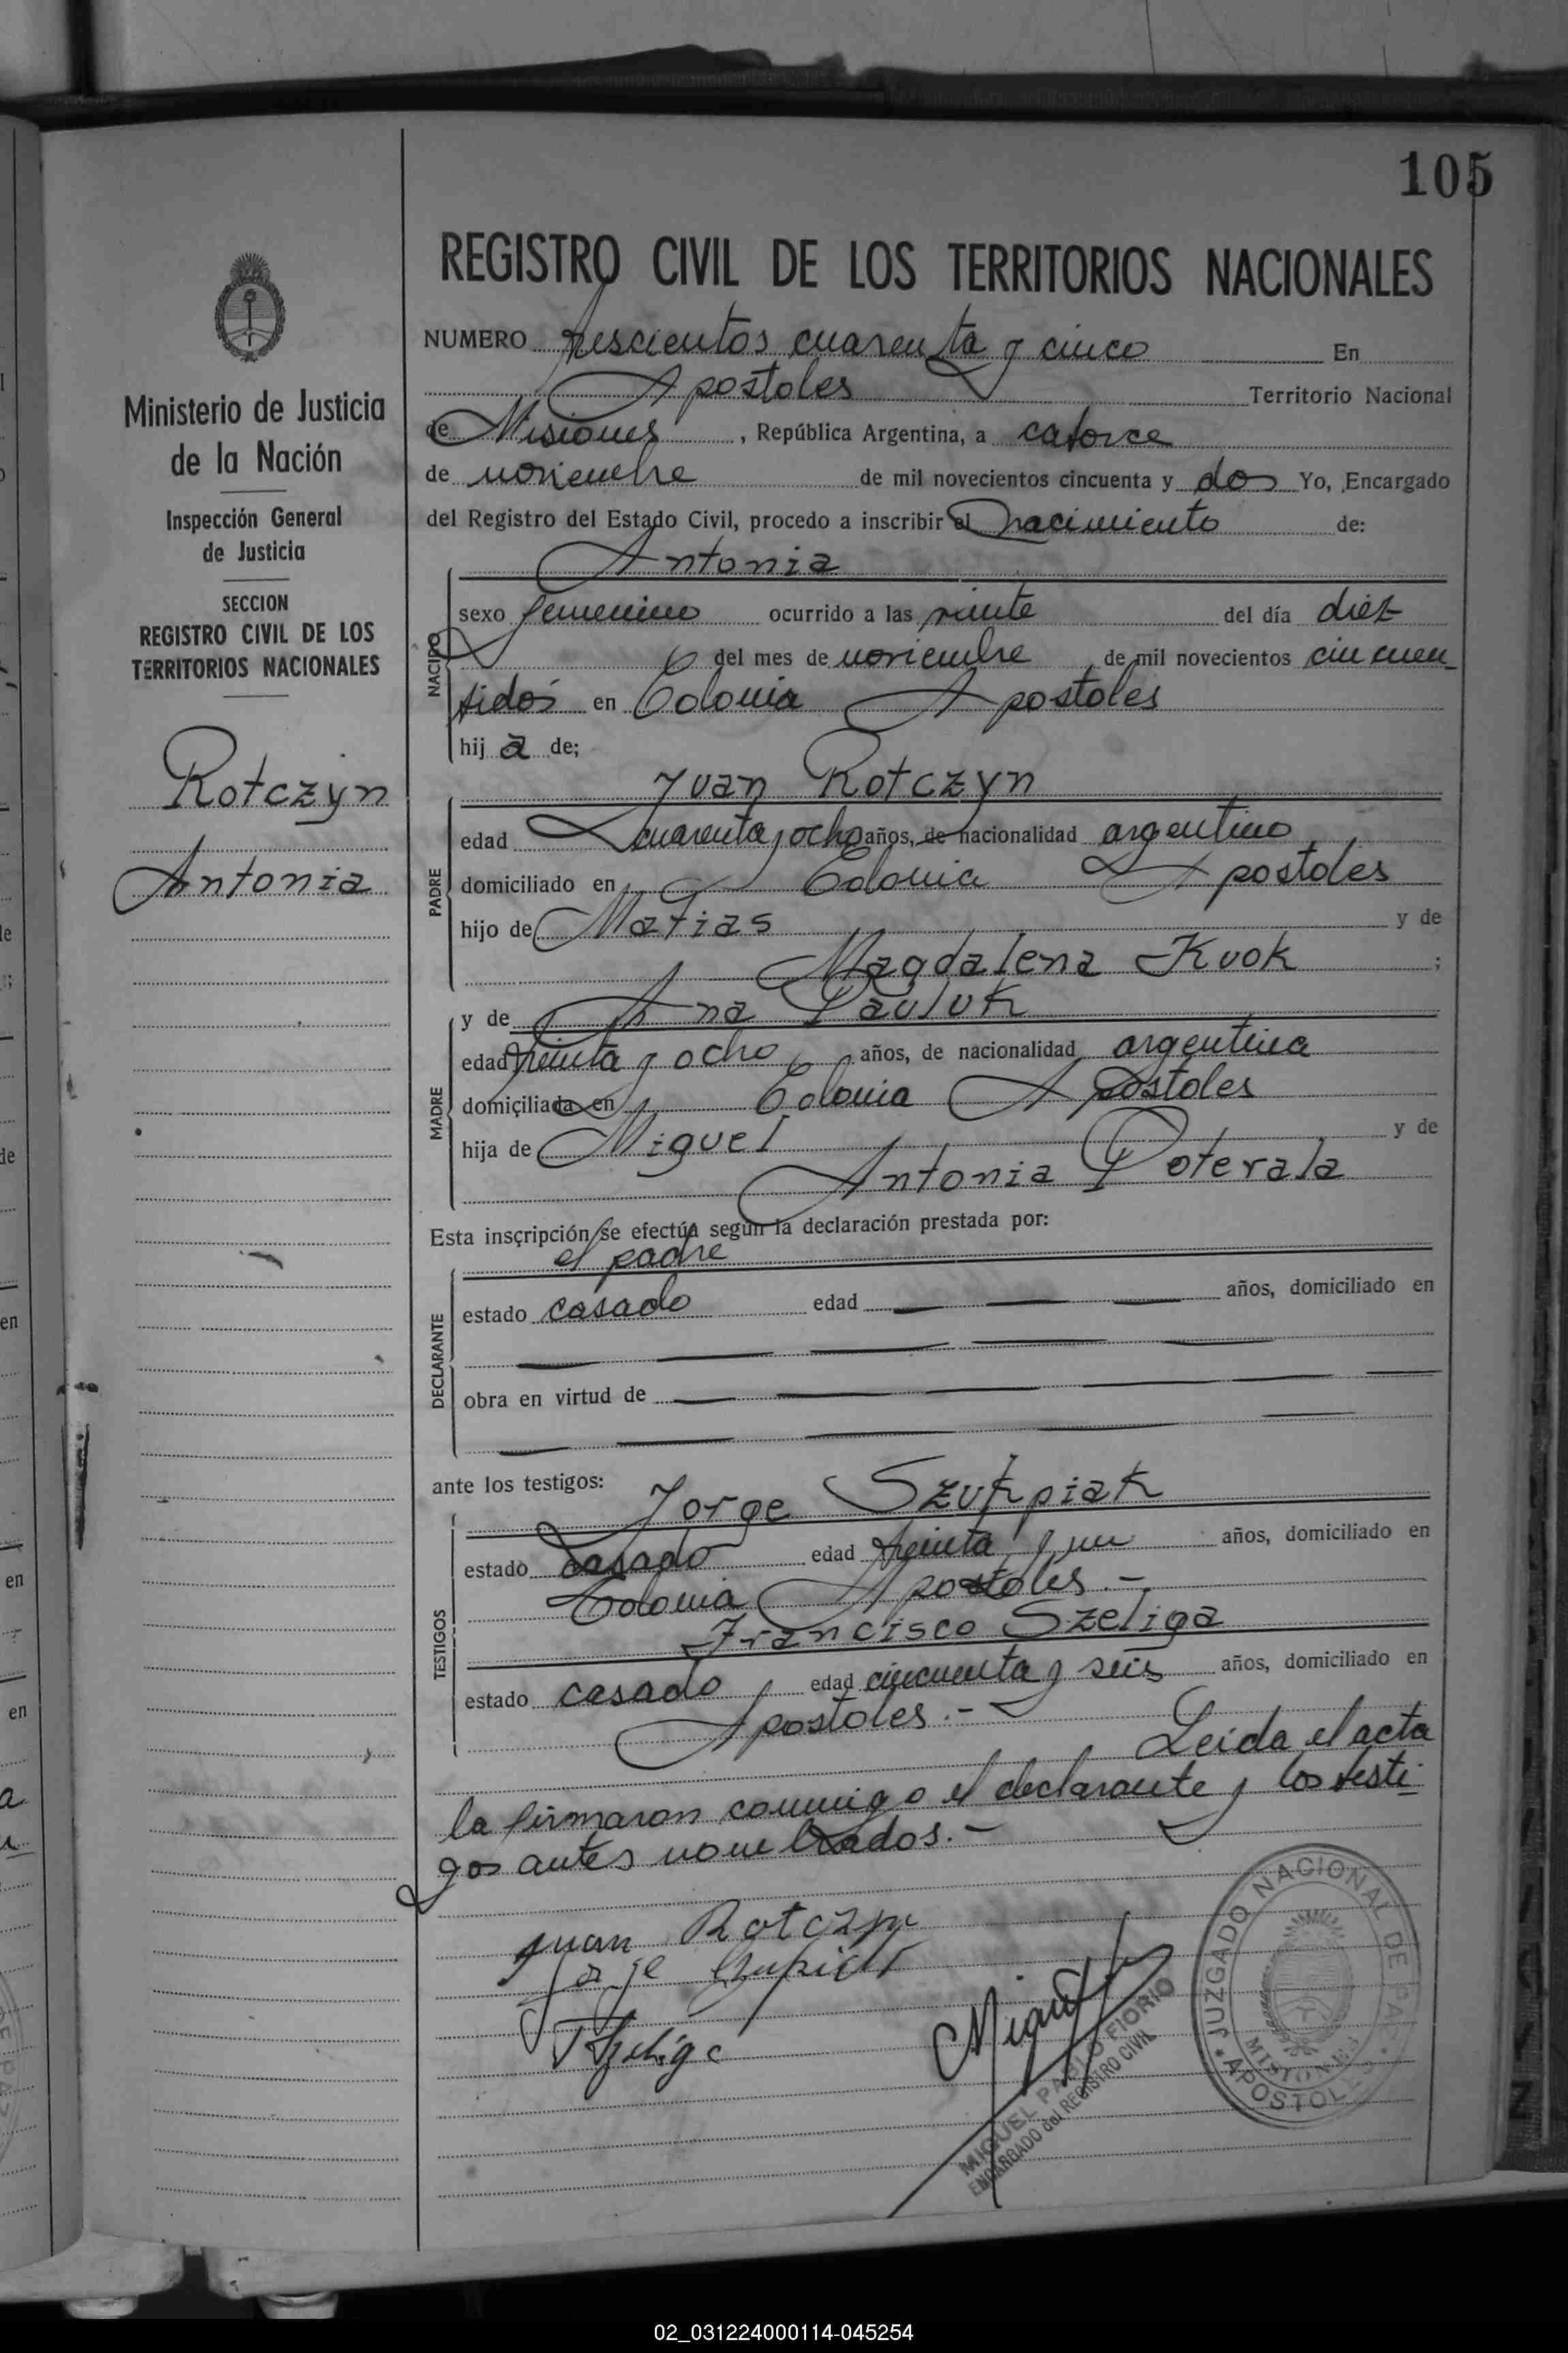 105
REGISTRO CIVIL DE LOS TERRITORIOS NACIONALES
Ministerio de Justicia
de la Nación
Inspección General
de Justicia
SECCION
REGISTRO CIVIL DE LOS
TERRITORIOS NACIONALES
Rotczyn
Antonia
NUMERO trescientos cuarenta y cinco En
Apostoles Territorio Nacional
de Misiones, República Argentina, a catorce
de noviembre de mil novecientos cincuenta y dos Yo, Encargado
del Registro del Estado Civil, procedo a inscribir el nacimiento de:
Antonia
NACIDO
sexo femenino ocurrido a las veinte del día diez
del mes de noviembre de mil novecientos cincuen
tidós en Colonia Apostoles
hij a de;
Juan Rotczyn
PADRE
edad cuarenta y ocho años, de nacionalidad argentino
domiciliado en Colonia Apostoles
hijo de Matias y de
Magdalena Kuok ;
y de Ana Pauluk
MADRE
edad treinta y ocho años, de nacionalidad argentina
domiciliada en Colonia Apostoles
hija de Miguel y de
Antonia Poterala
Esta inscripción se efectúa según la declaración prestada por:
el padre
DECLARANTE
estado casado edad años, domiciliado en
obra en virtud de
ante los testigos:
Jorge Szukpiak
TESTIGOS
estado casado edad treinta y un años, domiciliado en
Colonia Apostoles.-
Francisco Szeliga
estado casado edad cincuenta y seis años, domiciliado en
Apostoles.-
Leida el acta
la firmaron conmigo el declarante y los testi-
gos antes nombrados.-
Juan Rotczyn
Jorje
MIGUEL PABLO FIORIO
ENCARGADO del REGISTRO CIVIL
JUZGADO NACIONAL DE PAZ
MISIONES
APOSTOLES
02_031224000114-045254